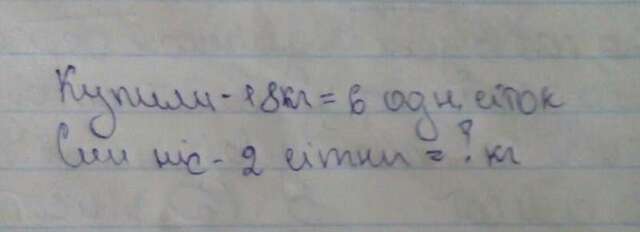 Купили - 18кг = 6 одн. сіток
Син ніс - 2 сітки = ? кг